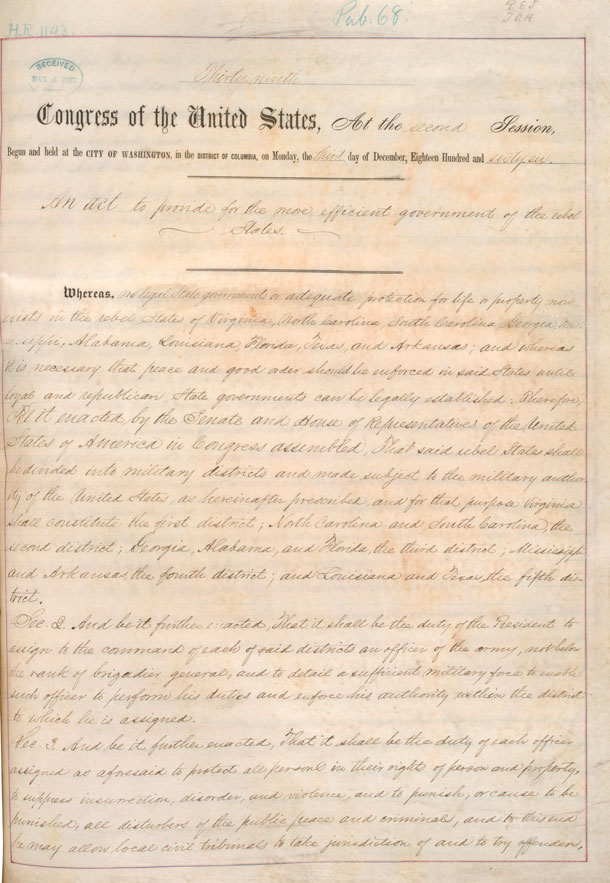 H.R. 1143.
Pub. 68.
RECEIVED
Thirty-ninth
Congress of the United States, At the second Session,
Begun and held at the CITY OF WASHINGTON, in the DISTRICT OF COLUMBIA, on Monday, the third day of December, Eighteen Hundred and sixty six.
An act to provide for the more efficient government of the rebel
States.
Whereas, no legal State governments or adequate protection for life or property now
exists in the rebel States of Virginia, North Carolina, South Carolina, Georgia, Mis-
sissippi, Alabama, Louisiana, Florida, Texas, and Arkansas; and whereas
it is necessary that peace and good order should be enforced in said States until
loyal and republican State governments can be legally established: Therefore,
Be it enacted by the Senate and House of Representatives of the United
States of America in Congress assembled, That said rebel States shall
be divided into military districts and made subject to the military author
ity of the United States, as hereinafter prescribed, and for that purpose Virginia
shall constitute the first district; North Carolina and South Carolina, the
second district; Georgia, Alabama, and Florida, the third district; Mississippi
and Arkansas, the fourth district; and Louisiana and Texas, the fifth dis-
trict.
Sec. 2. And be it further enacted, That it shall be the duty of the President to
assign to the command of each of said districts an officer of the army, not below
the rank of brigadier general, and to detail a sufficient military force to enable
such officer to perform his duties and enforce his authority within the district
to which he is assigned.
Sec 3. And be it further enacted, That it shall be the duty of each officer
assigned as aforesaid to protect all persons in their right of person and property,
to suppress insurrection, disorder, and violence, and to punish, or cause to be
punished, all disturbers of the public peace and criminals, and to this end
he may allow local civil tribunals to take jurisdiction of and to try offenders,